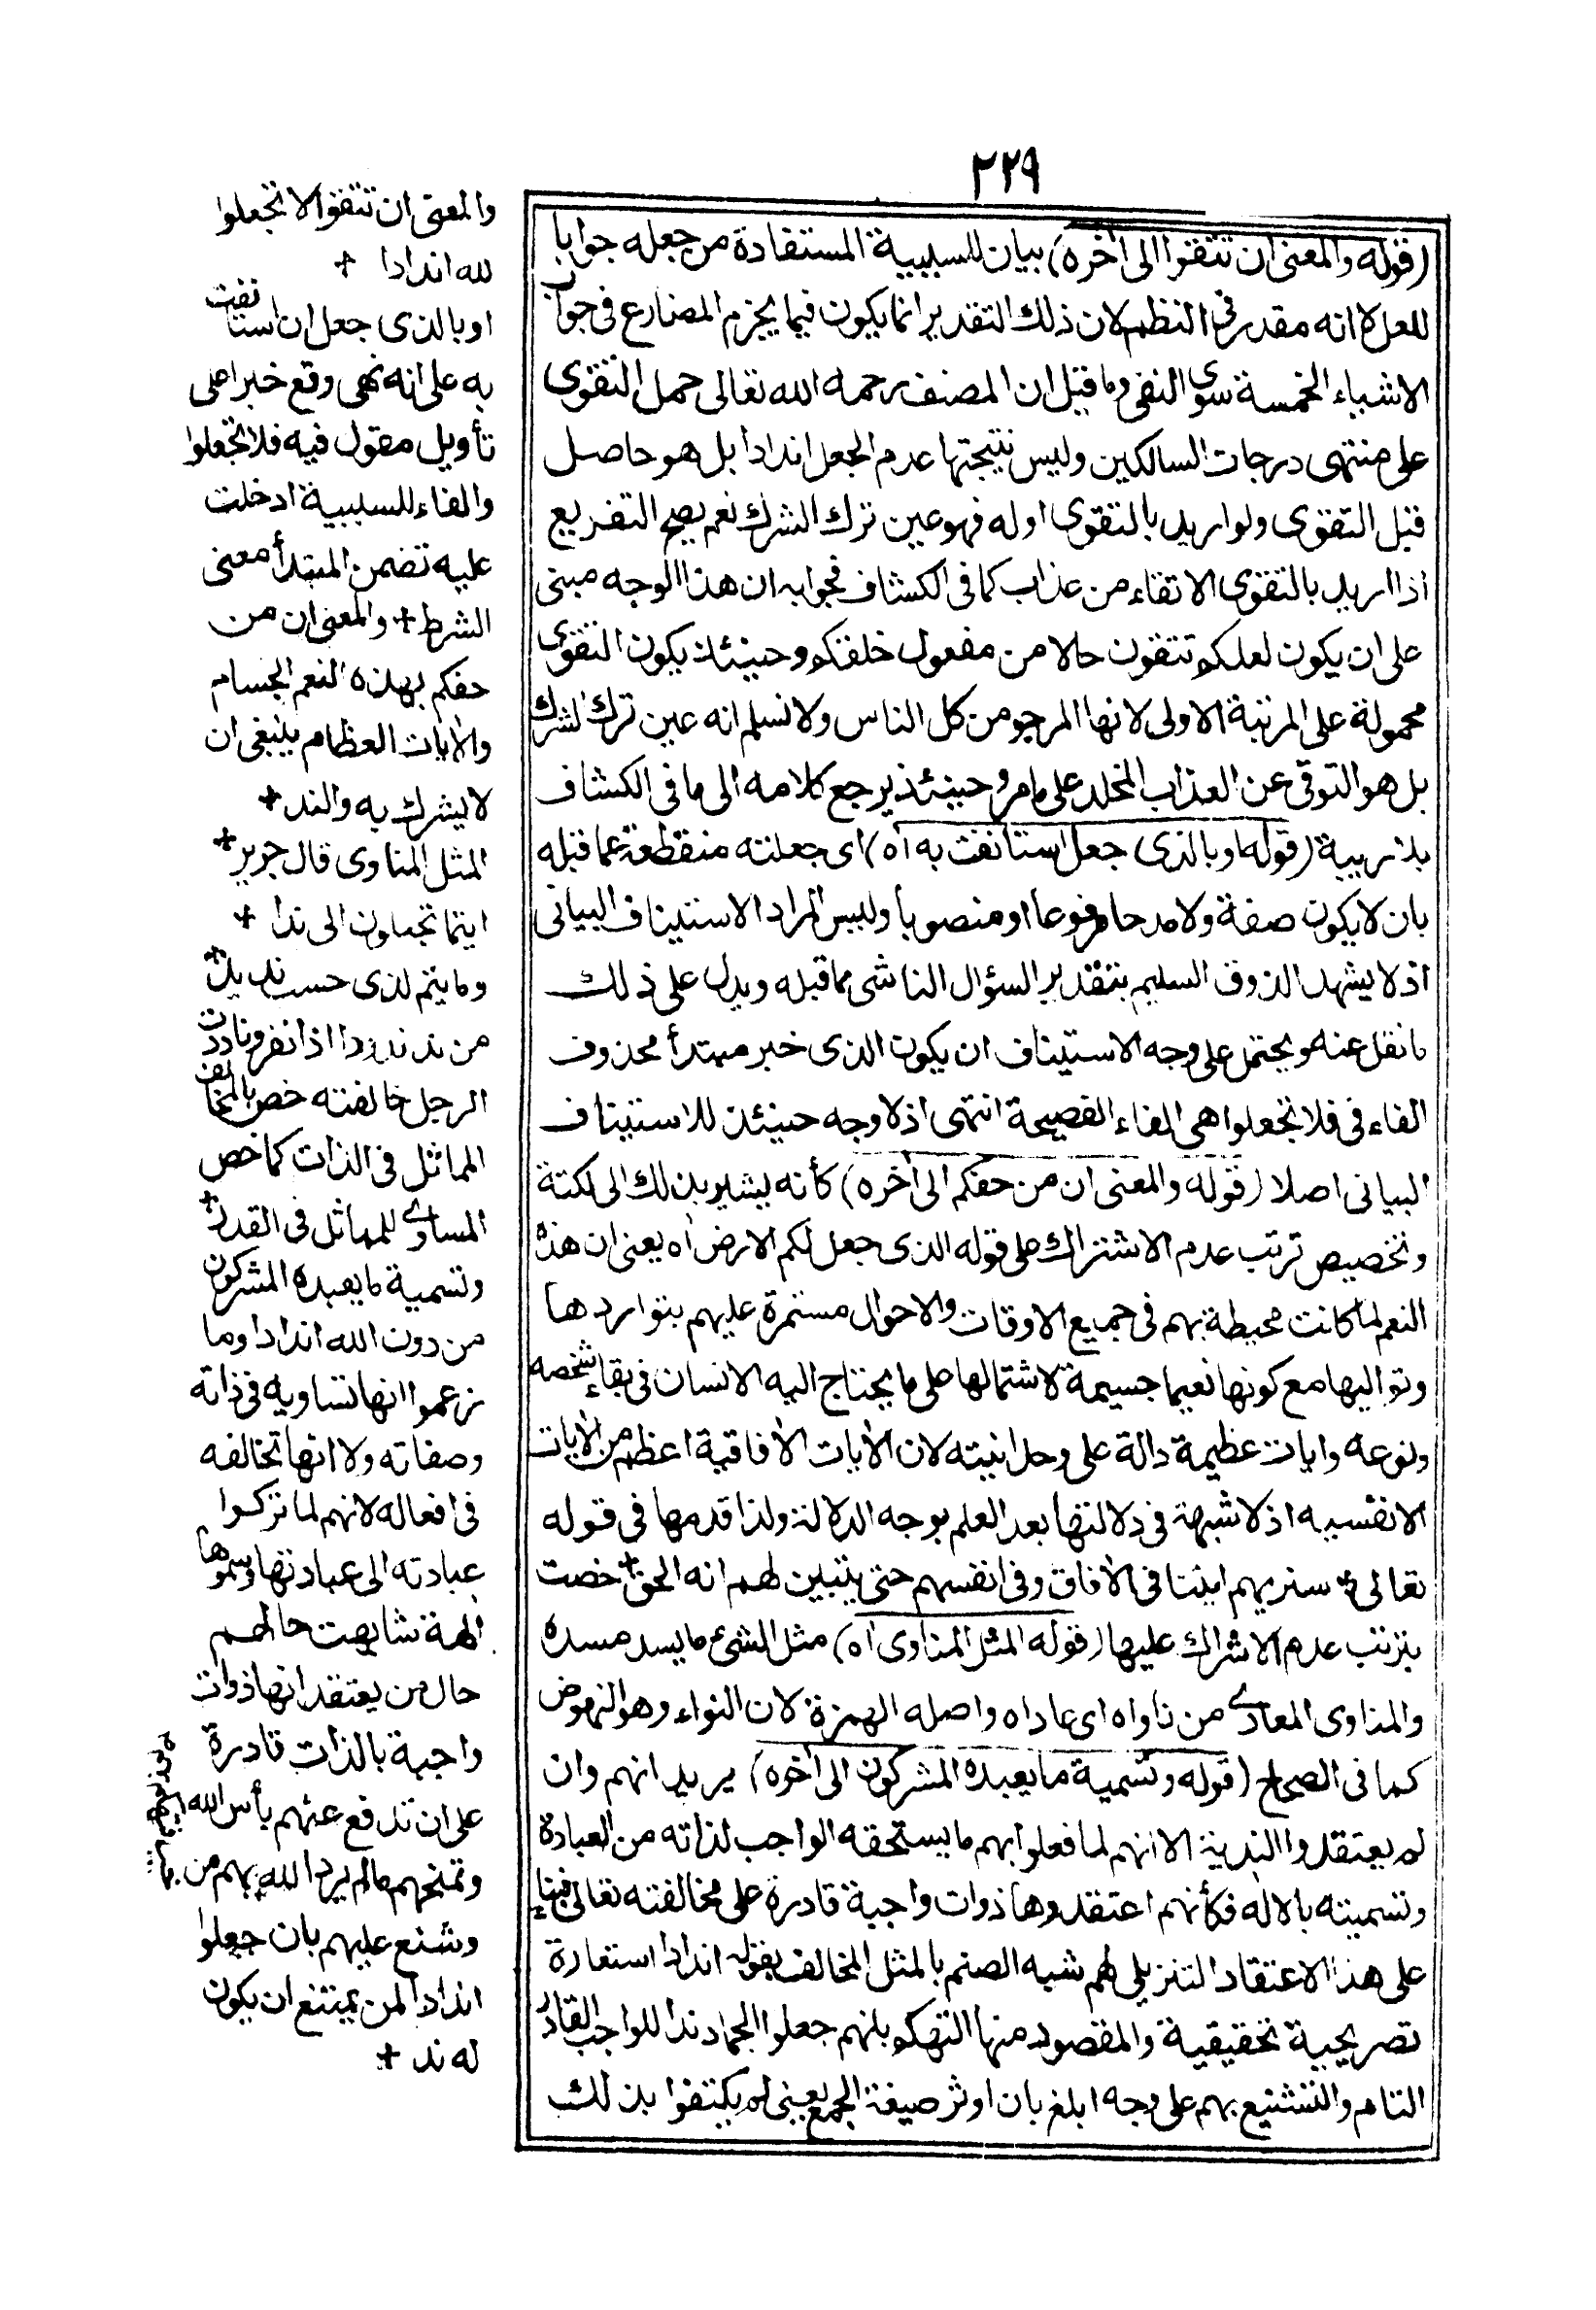 ٢٢٩
(قوله والمعنى ان تتقوا الى آخره) بيان للسببية المستفادة من جعله جوابا
للعل لا انه مقدر فى النظم لان ذلك التقدير انما يكون فيما يجزم المضارع فى جواب
الاشياء الخمسة سوى النفى وما قيل ان المصنف رحمه الله تعالى حمل التقوى
على منتهى درجات السالكين وليس نتيجتها عدم الجعل اندادا بل هو حاصل
قبل التقوى ولو اريد بالتقوى اوله فهو عين ترك الشرك نعم يصح التفريع
اذا اريد بالتقوى الاتقاء من عذاب كما فى الكشاف فجوابه ان هذا الوجه مبنى
على ان يكون لعلكم تتقون حالا من مفعول خلقكم وحينئذ يكون التقوى
محمولة على المرتبة الاولى لانها المرجو من كل الناس ولا نسلم انه عين ترك الشرك
بل هو التوقى عن العذاب المخلد على ما مر وحينئذ يرجع كلامه الى ما فى الكشاف
بلا ريبة (قوله او بالذى جعل استأنفت به اه) اى جعلته منقطعة عما قبله
بان لا يكون صفة ولا مدحا مرفوعا او منصوبا وليس المراد الاستيناف البيانى
اذ لا يشهد الذوق السليم بتقدير السؤال الناشى مما قبله ويدل على ذلك
ما نقل عنه ويحتمل على وجه الاستيناف ان يكون الذى خبر مبتدأ محذوف
الفاء فى فلا تجعلوا هى الفاء الفصيحة انتهى اذ لا وجه حينئذ للاستيناف
البيانى اصلا (قوله والمعنى ان من حفكم الى آخره) كأنه يشير بذلك الى لكتة
وتخصيص ترتب عدم الاشتراك على قوله الذى جعل لكم الارض اه يعنى ان هذه
النعم لما كانت محيطة بهم فى جميع الاوقات والاحوال مستمرة عليهم بتواردها
وتواليها مع كونها نعيما جسيمة لاشتمالها على ما يحتاج اليه الانسان فى بقاء شخصه
ونوعه وايات عظيمة دالة على وحدانيته لان الآيات الآفاقية اعظم من الآيات
الانفسيه اذ لا شبهة فى دلالتها بعد العلم بوجه الدلالة ولذا قدمها فى قوله
تعالى سنريهم ايتنا فى الآفاق وفى انفسهم حتى يتبين لهم انه الحق + خصت
بترتب عدم الاشراك عليها (قوله المثل المناوى اه) مثل الشىء ما يسد مسده
والمناوى المعادى من ناواه اى عاداه واصله الهمزة لان النواء وهو النهوض
كما فى الصحاح (قوله وتسمية ما يعبده المشركون الى آخره) يريد انهم وان
لم يعتقدوا الندية الا انهم لما فعلوا بهم ما يستحقه الواجب لذاته من العبادة
وتسميته بالاله فكأنهم اعتقدوها ذوات واجبة قادرة على مخالفته تعالى فبناء
على هذا الاعتقاد التنزيلى لهم شبه الصنم بالمثل المخالف بقوله اندادا استعارة
تصريحية تحقيقية والمقصود منها التهكم بانهم جعلوا الجماد ندا للواجب القادر
التام والتشنيع بهم على وجه ابلغ بان اوثر صيغة الجمع يعنى لم يكتفوا بذلك
والمعنى ان تتقوا لا تجعلوا
لله اندادا +
او بالذى جعل ان استأنفت
به على انه نهى وقع خبرا على
تأويل مقول فيه فلا تجعلوا
والفاء للسببية ادخلت
عليه تضمن المبتدأ معنى
الشرط + والمعنى ان من
حفكم بهذه النعم الجسام
والآيات العظام ينبغى ان
لا يشرك به والند +
المثل المناوى قال جرير +
ايتما تجعلون الى ندا +
وما يتم لذى حسب نديد +
من ند ندودا اذا نفر وناددت
الرجل خالفته خص بالمخالف
المماثل فى الذات كما خص
المساوى للمماثل فى القدر +
وتسمية ما يعبده المشركون
من دون الله اندادا وما
زعموا انها تساويه فى ذاته
وصفاته ولا انها تخالفه
فى افعاله لانهم لما تركوا
عبادته الى عبادتها وسموها
الهة تشابهت حالهم
حال من يعتقد انها ذوات
واجبة بالذات قادرة
على ان تدفع عنهم بأس الله
وتمنحهم ما لم يرد الله بهم من
وشنع عليهم بان جعلوا
اندادا لمن يمتنع ان يكون
له ند +